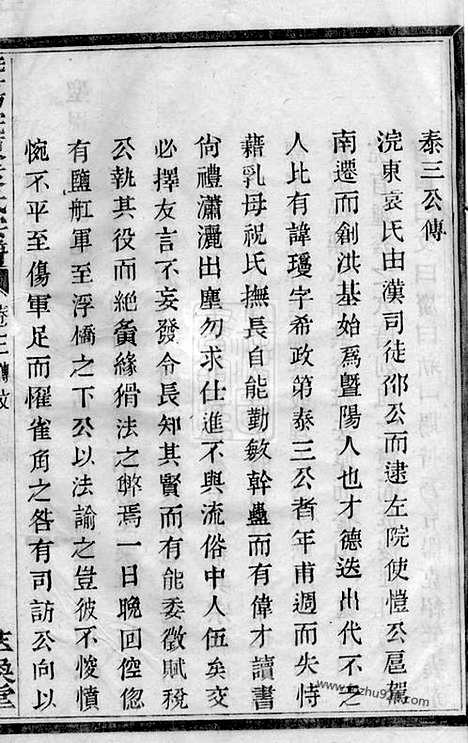 泰三公傳
浣東袁氏由漢司徒邵公而逮左院使愷公扈駕
南遷而創洪基始爲暨陽人也才德迭出代不乏
人比有諱璦字希政第泰三公者年甫週而失恃
藉乳母祝氏撫長自能勤敏幹蠱而有偉才讀書
尙禮瀟灑出塵勿求仕進不與流俗中人伍矣交
必擇友言不妄發令長知其賢而有能委徵賦稅
公執其役而絶夤緣猾法之弊焉一日晚回倥偬
有鹽舡軍至浮橋之下公以法諭之豈彼不悛憤
惋不平至傷軍足而懼雀角之咎有司訪公向以
卷三